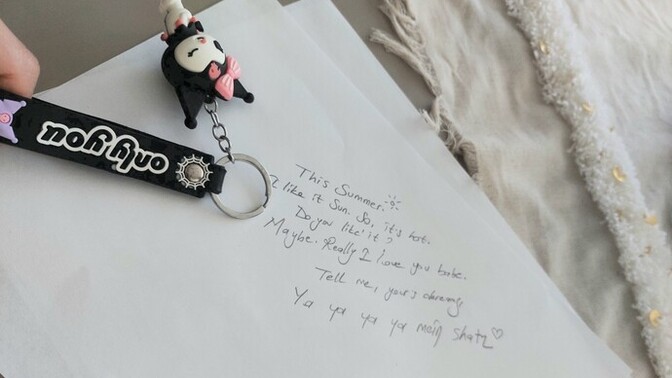 only you
This Summer.
I like it Sun. So, it's hot.
Do you like it?
Maybe. Really I love you babe.
Tell me, your's
Ya ya ya ya mein shatz